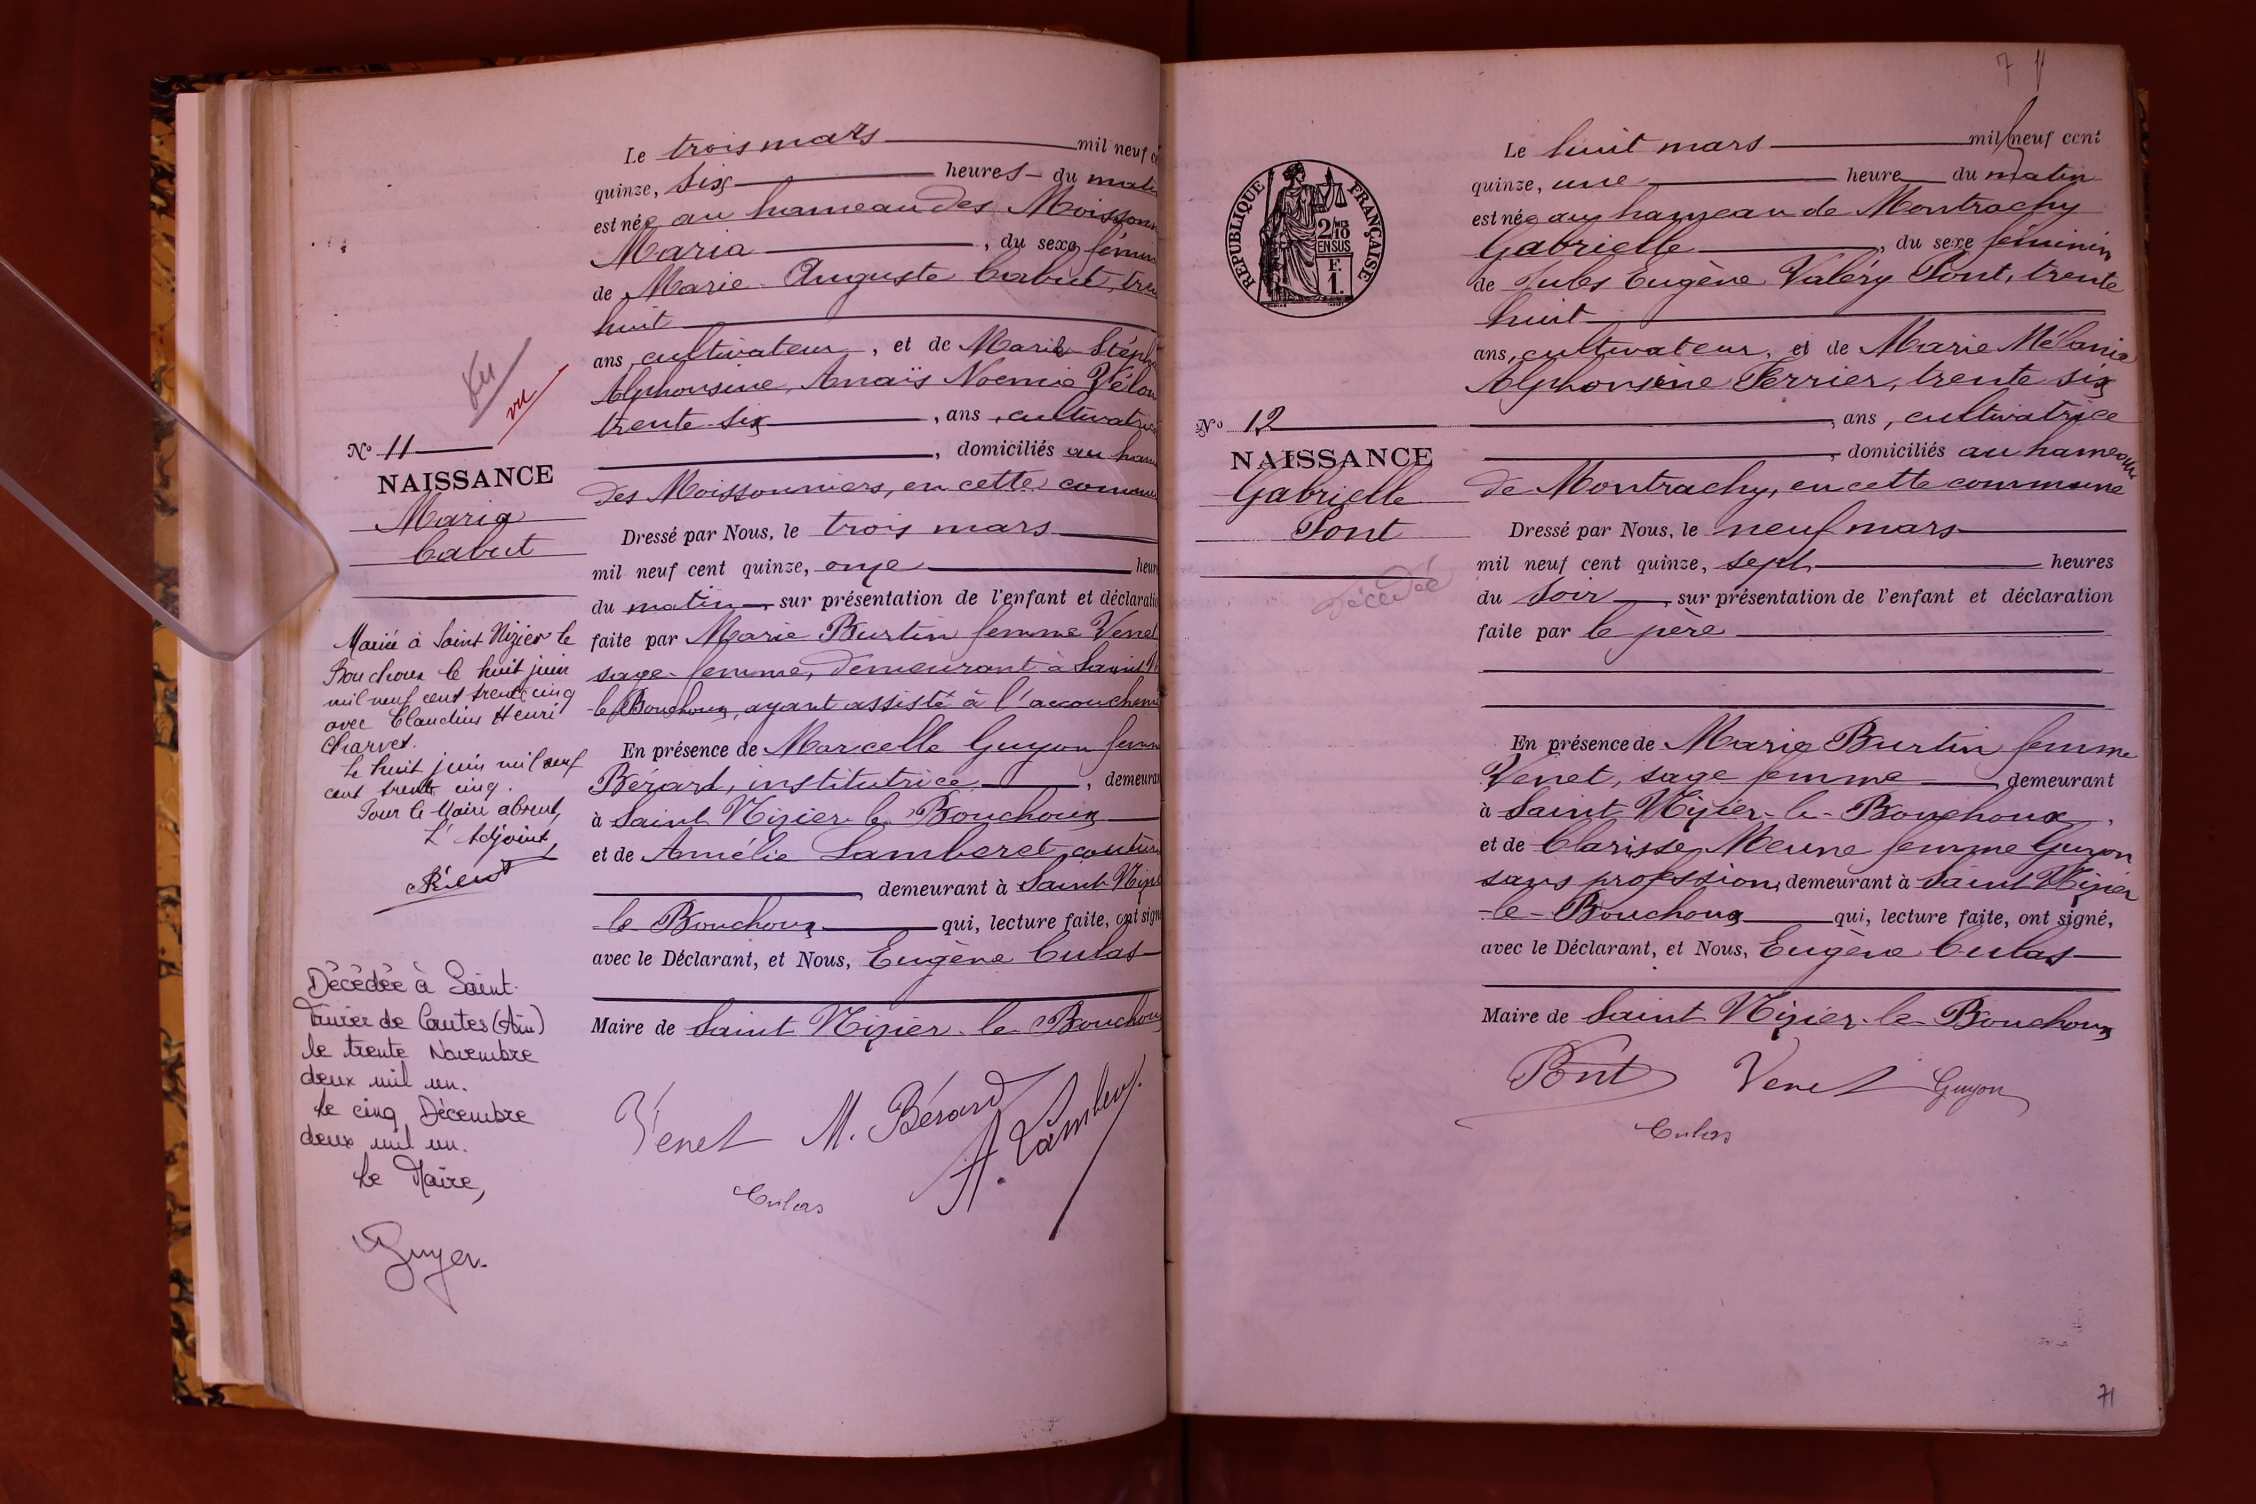 N° 11
NAISSANCE
Maria
Cabut
vu
vu
Mariée à Saint Nizier le
Bouchoux le huit juin
mil neuf cent trente cinq
avec Claudius Henri
Charvet.
Le huit juin mil neuf
cent trente cinq.
Pour le Maire absent,
L'Adjoint
Décédée à Saint
de Coutes (Ain)
le trente Novembre
deux mil un.
Le cinq Décembre
deux mil un.
Le Maire,
Guyon
Le trois mars mil neuf
quinze, six heures du
est née au hameau des
Maria, du sexe
de Marie Auguste Cabut,
huit
ans, cultivateur, et de Marie
Alphonsine, Anaïs Noémie
trente-six, ans,
, domiciliés au
des Moissonniers, en cette
Dressé par Nous, le trois mars
mil neuf cent quinze, onze
du matin, sur présentation de l'enfant et
faite par Marie Burtin femme Venet
sage-femme, demeurant à Saint
le Bouchoux, ayant assisté à
En présence de Marcelle Guyon
Bérard, institutrice,
à Saint Nizier le Bouchoux
et de Amélie Lamberet,
demeurant à Saint
le Bouchoux qui, lecture faite, ont
avec le Déclarant, et Nous, Eugène Culas
Maire de Saint Nizier-le-Bouchoux
Venet M. Bérard
A. Lamberet
Culas
7
RÉPUBLIQUE FRANÇAISE
2/10
EN SUS
F.
1.
N° 12
NAISSANCE
Gabrielle
Pont
décédée
Le huit mars mil neuf cent
quinze, une heure du matin
est née au hameau de Montrachy
Gabrielle, du sexe féminin
de Jules Eugène Valéry Pont, trente
huit
ans, cultivateur, et de Marie Mélanie
Alphonsine Perrier, trente six
ans, cultivatrice
, domiciliés au hameau
de Montrachy, en cette commune
Dressé par Nous, le neuf mars
mil neuf cent quinze, sept heures
du soir, sur présentation de l'enfant et déclaration
faite par le père
En présence de Marie Burtin femme
Venet, sage femme demeurant
à Saint Nizier-le-Bouchoux,
et de Clarisse femme Guyon
sans profession, demeurant à Saint Nizier
-le-Bouchoux qui, lecture faite, ont signé,
avec le Déclarant, et Nous, Eugène Culas
Maire de Saint Nizier-le-Bouchoux
Pont Venet Guyon
Culas
71